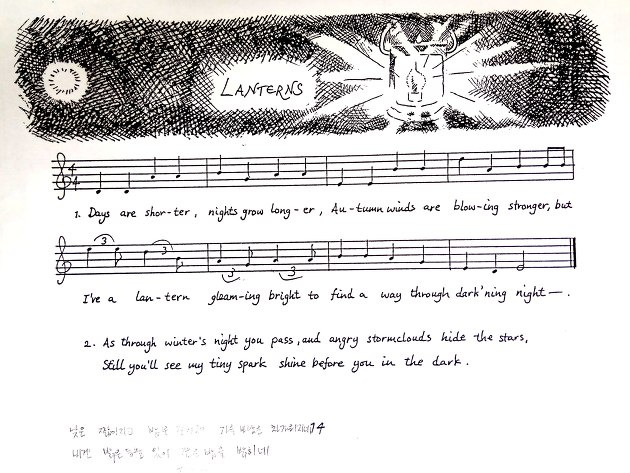 LANTERNS
1. Days are shor-ter, nights grow long-er, Au-tumn winds are blow-ing stronger, but
3 3 3 3
I've a lan-tern gleam-ing bright to find a way through dark'ning night—.
2. As through winter's night you pass, and angry stormclouds hide the stars,
Still you'll see my tiny spark shine before you in the dark.
낮은 짧아지고 14
내겐 있어